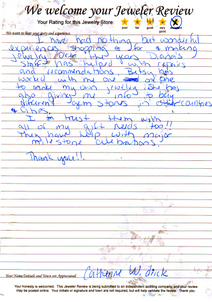 We welcome your Jeweler Review
Your Rating for this Jewelry Store
We want to hear your story and experience
I have had nothing but wonderful
experiences shopping for & making
jewelry over the years. Danny's
staff has helped with repairs
and recommendations. Betsy has
worked with me one on one
to make my own jewelry. She has
also giving me info to buy
different gem stones in other countries
& cities.
I trust them with
all of my gift needs too!!
They have help with major
milestone celebrations,
Thank you!!
Your Name/Initials and Town are Appreciated
Catherine W.
Your honesty is welcomed. This Jeweler Review is being submitted to an independent auditing company and your review
may be posted online. Your initials or signature and town are not required, but will help validate the review. Thank you.